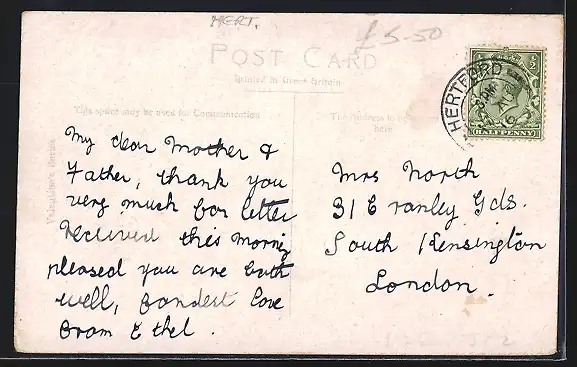 HERT.
£5-50
POST CARD
Printed in Great Britain
This space may be used for Communication
The Address to be
here
HERTFORD
HALFPENNY
My dear Mother &
Father, thank you
very much for letter
received this morning
pleased you are both
well, fondest love
from Ethel.
Mrs North
31 Cranley Gds.
South Kensington
London.